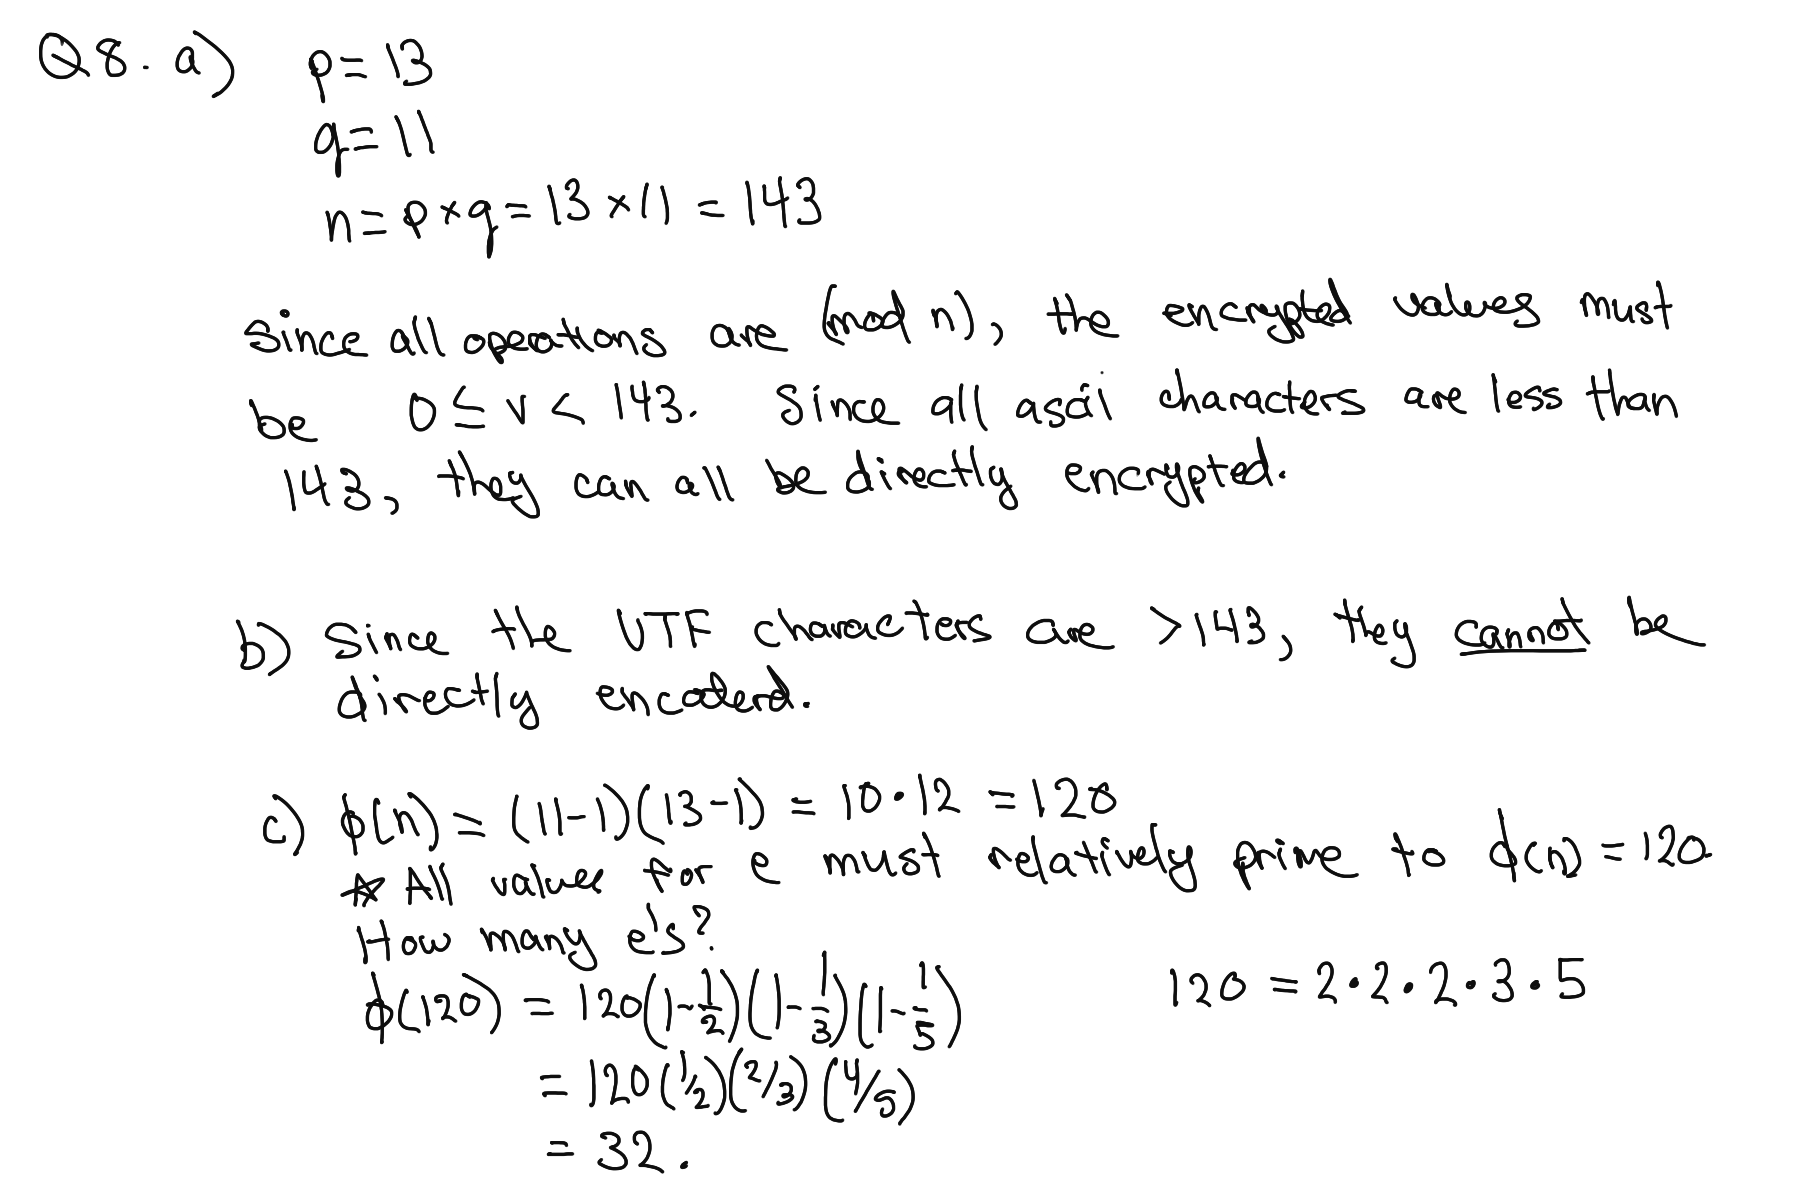 Q8. a) p = 13
q = 11
n = p × q = 13 × 11 = 143
Since all operations are (mod n), the encrypted values must
be 0 ≤ v < 143. Since all ascii characters are less than
143, they can all be directly encrypted.
b) Since the UTF characters are >143, they cannot be
directly encoderd.
c) ϕ(n) = (11-1)(13-1) = 10·12 = 120
☆ All values for e must relatively prime to ϕ(n) = 120.
How many e's?
ϕ(120) = 120(1-1/2)(1-1/3)(1-1/5) 120 = 2·2·2·3·5
= 120(1/2)(2/3)(4/5)
= 32.